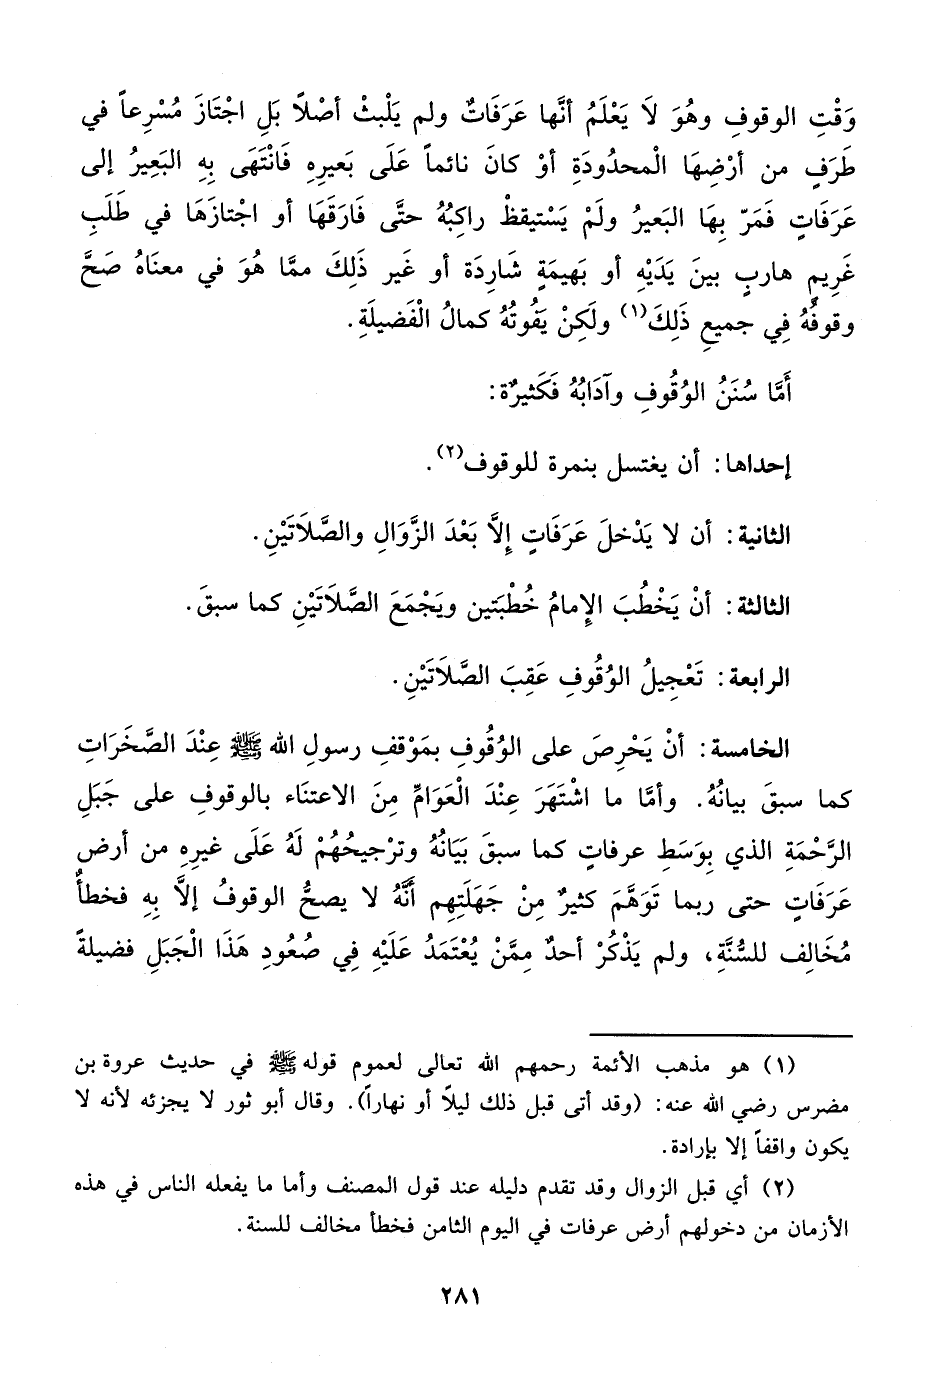 وَقْتِ الوقوفِ وهُوَ لَا يَعْلَمُ أنَّها عَرَفَاتٌ ولم يَلْبثْ أصْلاً بَلِ اجْتَازَ مُسْرِعاً في
طَرَفٍ من أرْضِهَا الْمحدُودَةِ أوْ كانَ نائماً عَلَى بَعيرِهِ فَانْتَهَى بِهِ البَعِيرُ إلى
عَرَفَاتٍ فَمَرّ بِهَا البَعيرُ ولَمْ يَسْتيقظْ راكِبُهُ حتَّى فَارَقَهَا أو اجْتازَهَا في طَلَبِ
غَرِيمٍ هاربٍ بينَ يَدَيْهِ أو بَهيمَةٍ شَارِدَة أو غَير ذَلِكَ ممَّا هُوَ في معنَاهُ صَحَّ
وقوفُهُ فِي جميعِ ذَلِكَ(١) ولَكِنْ يَفُوتُهُ كمالُ الْفَضيلَةِ.
أَمَّا سُنَنُ الوُقُوفِ وآدَابُهُ فَكَثيرٌة:
إحداها: أن يغتسل بنمرة للوقوف(٢).
الثانية: أن لا يَدْخلَ عَرَفَاتٍ إلَّا بَعْدَ الزَّوَالِ والصَّلَاتَيْنِ.
الثالثة: أنْ يَخْطُبَ الإمامُ خُطْبَتين ويَجْمَعَ الصَّلَاتَيْنِ كما سبقَ.
الرابعة: تَعْجِيلُ الوُقُوفِ عَقِبَ الصَّلَاتَيْنِ.
الخامسة: أنْ يَحْرِصَ على الوُقُوفِ بمَوْقفِ رسولِ الله ﷺ عِنْدَ الصَّخَرَاتِ
كما سبقَ بيانُهُ. وأمَّا ما اشْتَهَرَ عِنْدَ الْعَوَامِّ مِنَ الاعتنَاء بالوقوفِ على جَبَلِ
الرَّحْمَةِ الذي بِوَسَطِ عرفاتٍ كما سبقَ بَيَانُهُ وترْجيحُهُمْ لَهُ عَلَى غيرِهِ من أرض
عَرَفَاتٍ حتى ربما تَوَهَّمَ كثيرٌ مِنْ جَهَلَتِهِم أَنَّهُ لا يصحُّ الوقوفُ إلَّا بِهِ فخطأٌ
مُخَالِف للسُّنَّةِ، ولم يَذْكُرْ أحدٌ مِمَّنْ يُعْتَمَدُ عَلَيْهِ فِي صُعُودِ هَذَا الْجَبَلِ فضيلةً
(١) هو مذهب الأئمة رحمهم الله تعالى لعموم قوله ﷺ في حديث عروة بن
مضرس رضي الله عنه: (وقد أتى قبل ذلك ليلاً أو نهاراً). وقال أبو ثور لا يجزئه لأنه لا
يكون واقفاً إلا بإرادة.
(٢) أي قبل الزوال وقد تقدم دليله عند قول المصنف وأما ما يفعله الناس في هذه
الأزمان من دخولهم أرض عرفات في اليوم الثامن فخطأ مخالف للسنة.
٢٨١